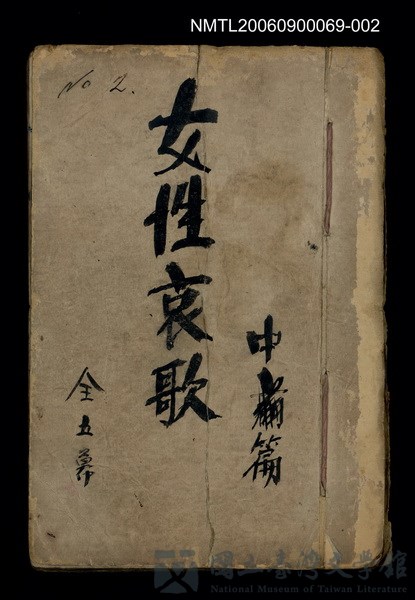 NMTL20060900069-002
No 2.
女性哀歌
中篇
全五幕
國立臺灣文學館
National Museum of Taiwan Literature